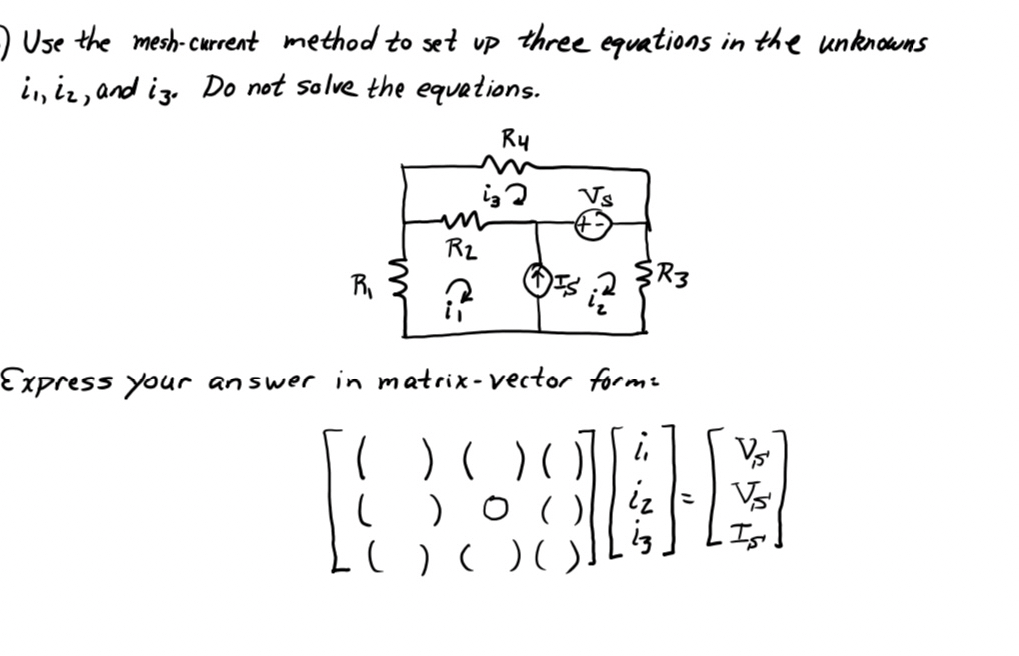 ) Use the mesh-current method to set up three equations in the unknowns
i₁, i₂, and i₃. Do not solve the equations.
R4
i₃ Vs
+ -
R2
R₁ i₁ Is i₂ R3
Express your answer in matrix-vector form:
[ ( ) ( ) ( ) ] [ i₁ ] [ Vs ]
[ ( ) 0 ( ) ] [ i₂ ] = [ Vs ]
[ ( ) ( ) ( ) ] [ i₃ ] [ Is ]